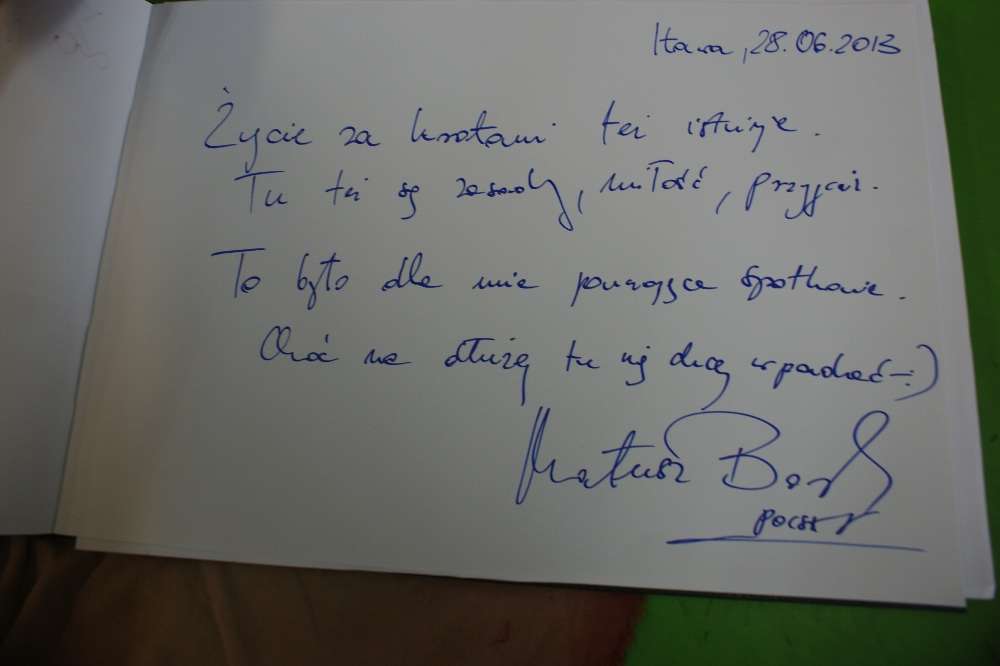 Iława, 28.06.2013
Życie za kratami też istnieje.
Tu też są zasady, miłość, przyjaźń.
To było dla mnie poruszające spotkanie.
Choć na dłużej tu nie chcę wpadać :)
Mateusz